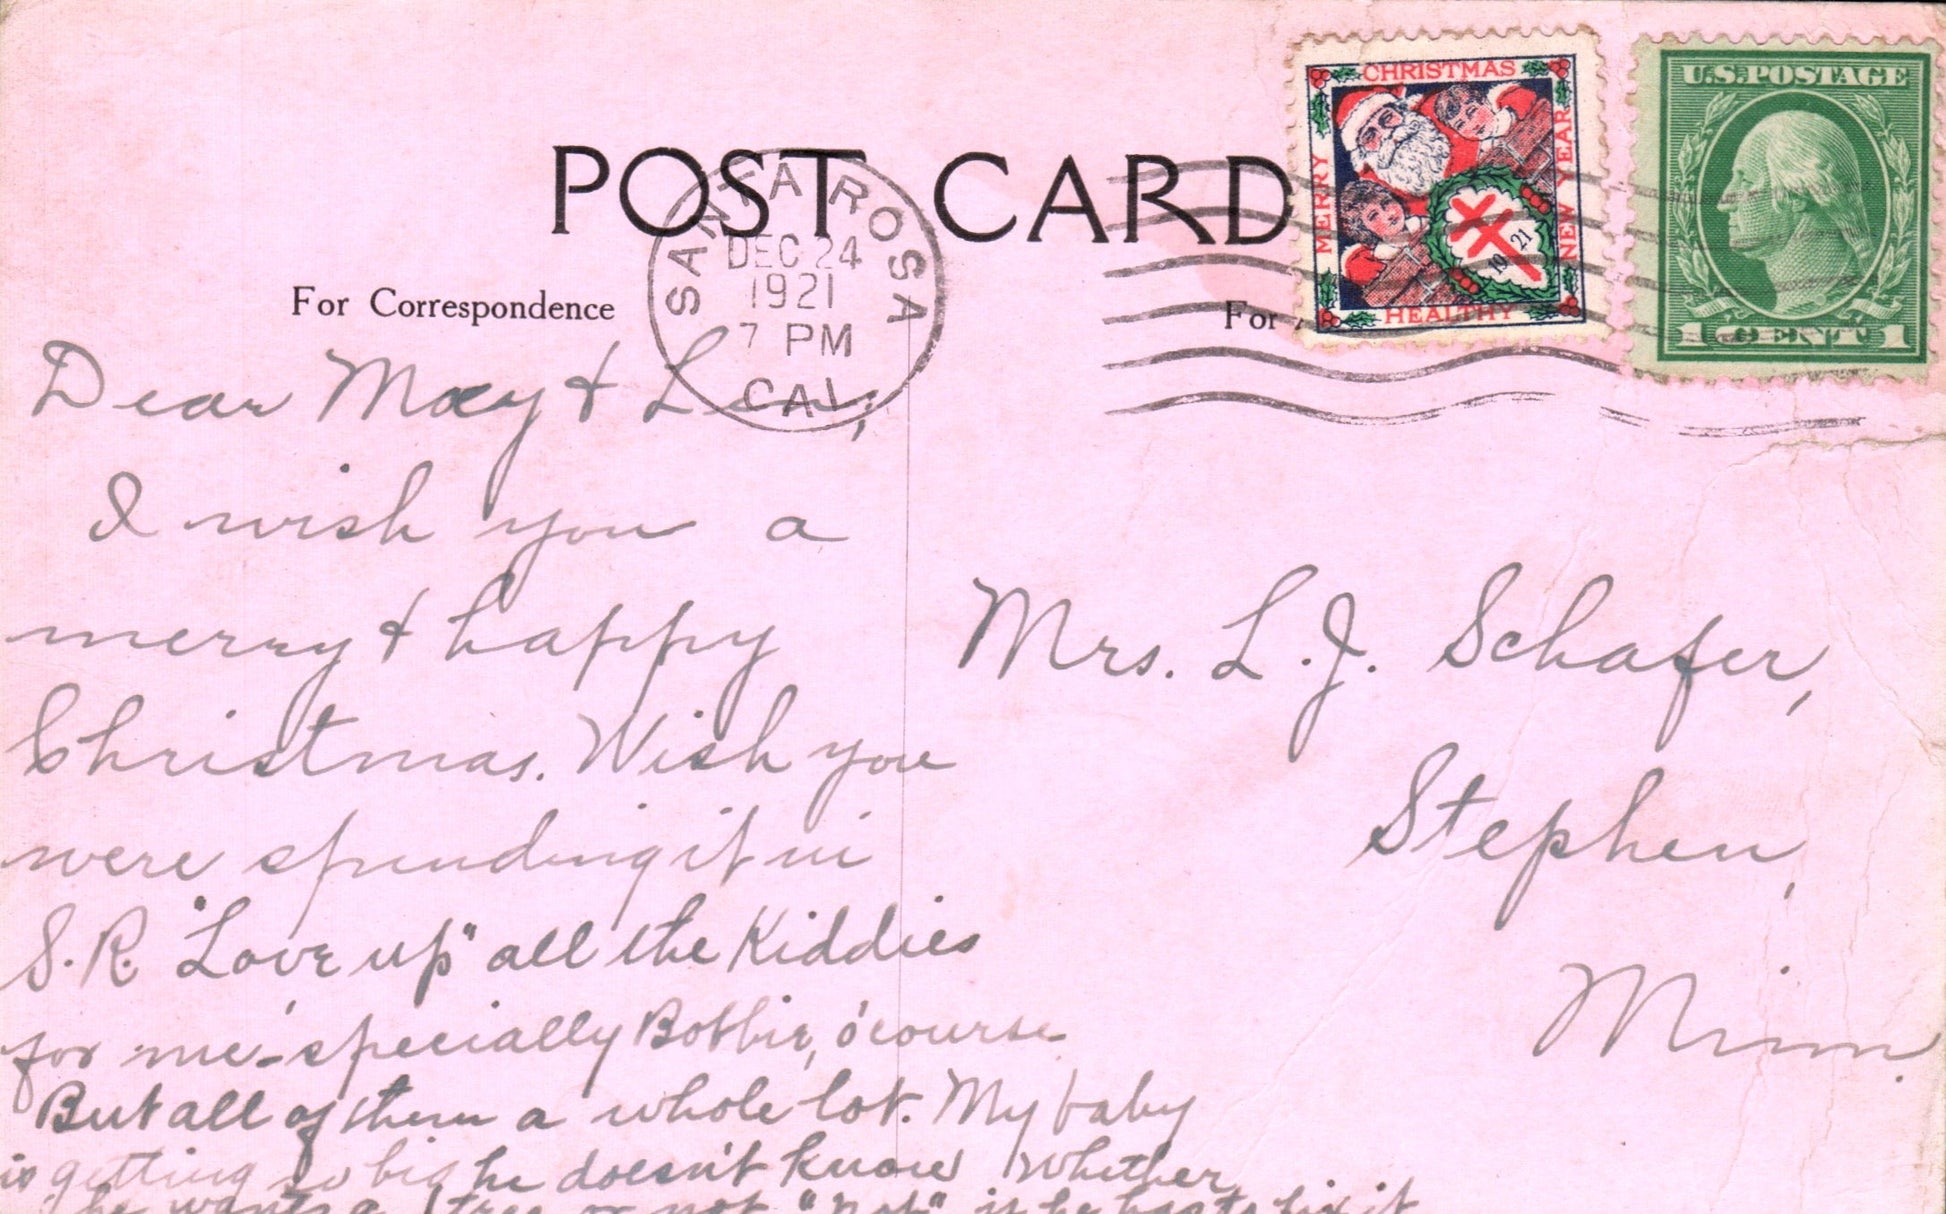 POST CARD
SANTA ROSA
DEC 24
1921
7 PM
CAL.
CHRISTMAS
MERRY
NEW YEAR
HEALTHY
19 21
U.S. POSTAGE
1 CENT 1
For Correspondence
For
Dear May & L
I wish you a
merry & happy
Christmas. Wish you
were spending it in
S.R. "Love up" all the Kiddies
for me - specially Bobbie, o'course
But all of them a whole lot. My baby
is getting so big he doesn't know whether
he wants a tree or not "not" if he has to fix it
Mrs. L. J. Schafer,
Stephen,
Minn.